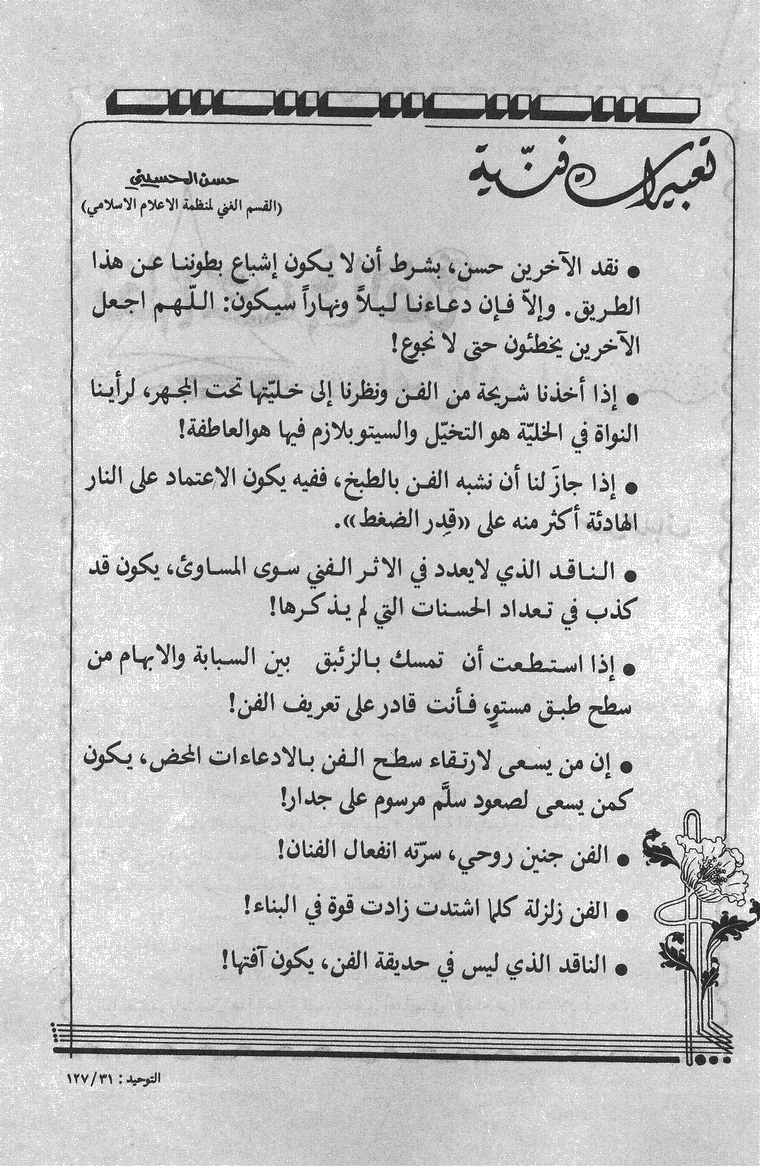 تعبيرات فنّية
حسن الحسيني
(القسم الفني لمنظمة الاعلام الاسلامي)
● نقد الآخرين حسن، بشرط أن لا يكون إشباع بطوننا عن هذا
الطريق. وإلاّ فإن دعاءنا ليلاً ونهاراً سيكون: اللّهم اجعل
الآخرين يخطئون حتى لا نجوع!
● إذا أخذنا شريحة من الفن ونظرنا إلى خليّتها تحت المجهر، لرأينا
النواة في الخليّة هو التخيّل والسيتوبلازم فيها هوالعاطفة!
● إذا جازَ لنا أن نشبه الفن بالطبخ، ففيه يكون الاعتماد على النار
الهادئة أكثر منه على «قِدِر الضغط».
● الناقد الذي لايعدد في الاثر الفني سوى المساوئ، يكون قد
كذب في تعداد الحسنات التي لم يذكرها!
● إذا استطعت أن تمسك بالزئبق بين السبابة والابهام من
سطح طبق مستوٍ، فأنت قادر على تعريف الفن!
● إن من يسعى لارتقاء سطح الفن بالادعاءات المحض، يكون
كمن يسعى لصعود سلَّم مرسوم على جدار!
● الفن جنين روحي، سرّته انفعال الفنان!
● الفن زلزلة كلما اشتدت زادت قوة في البناء!
● الناقد الذي ليس في حديقة الفن، يكون آفتها!
التوحيد: ٣١/ ١٢٧